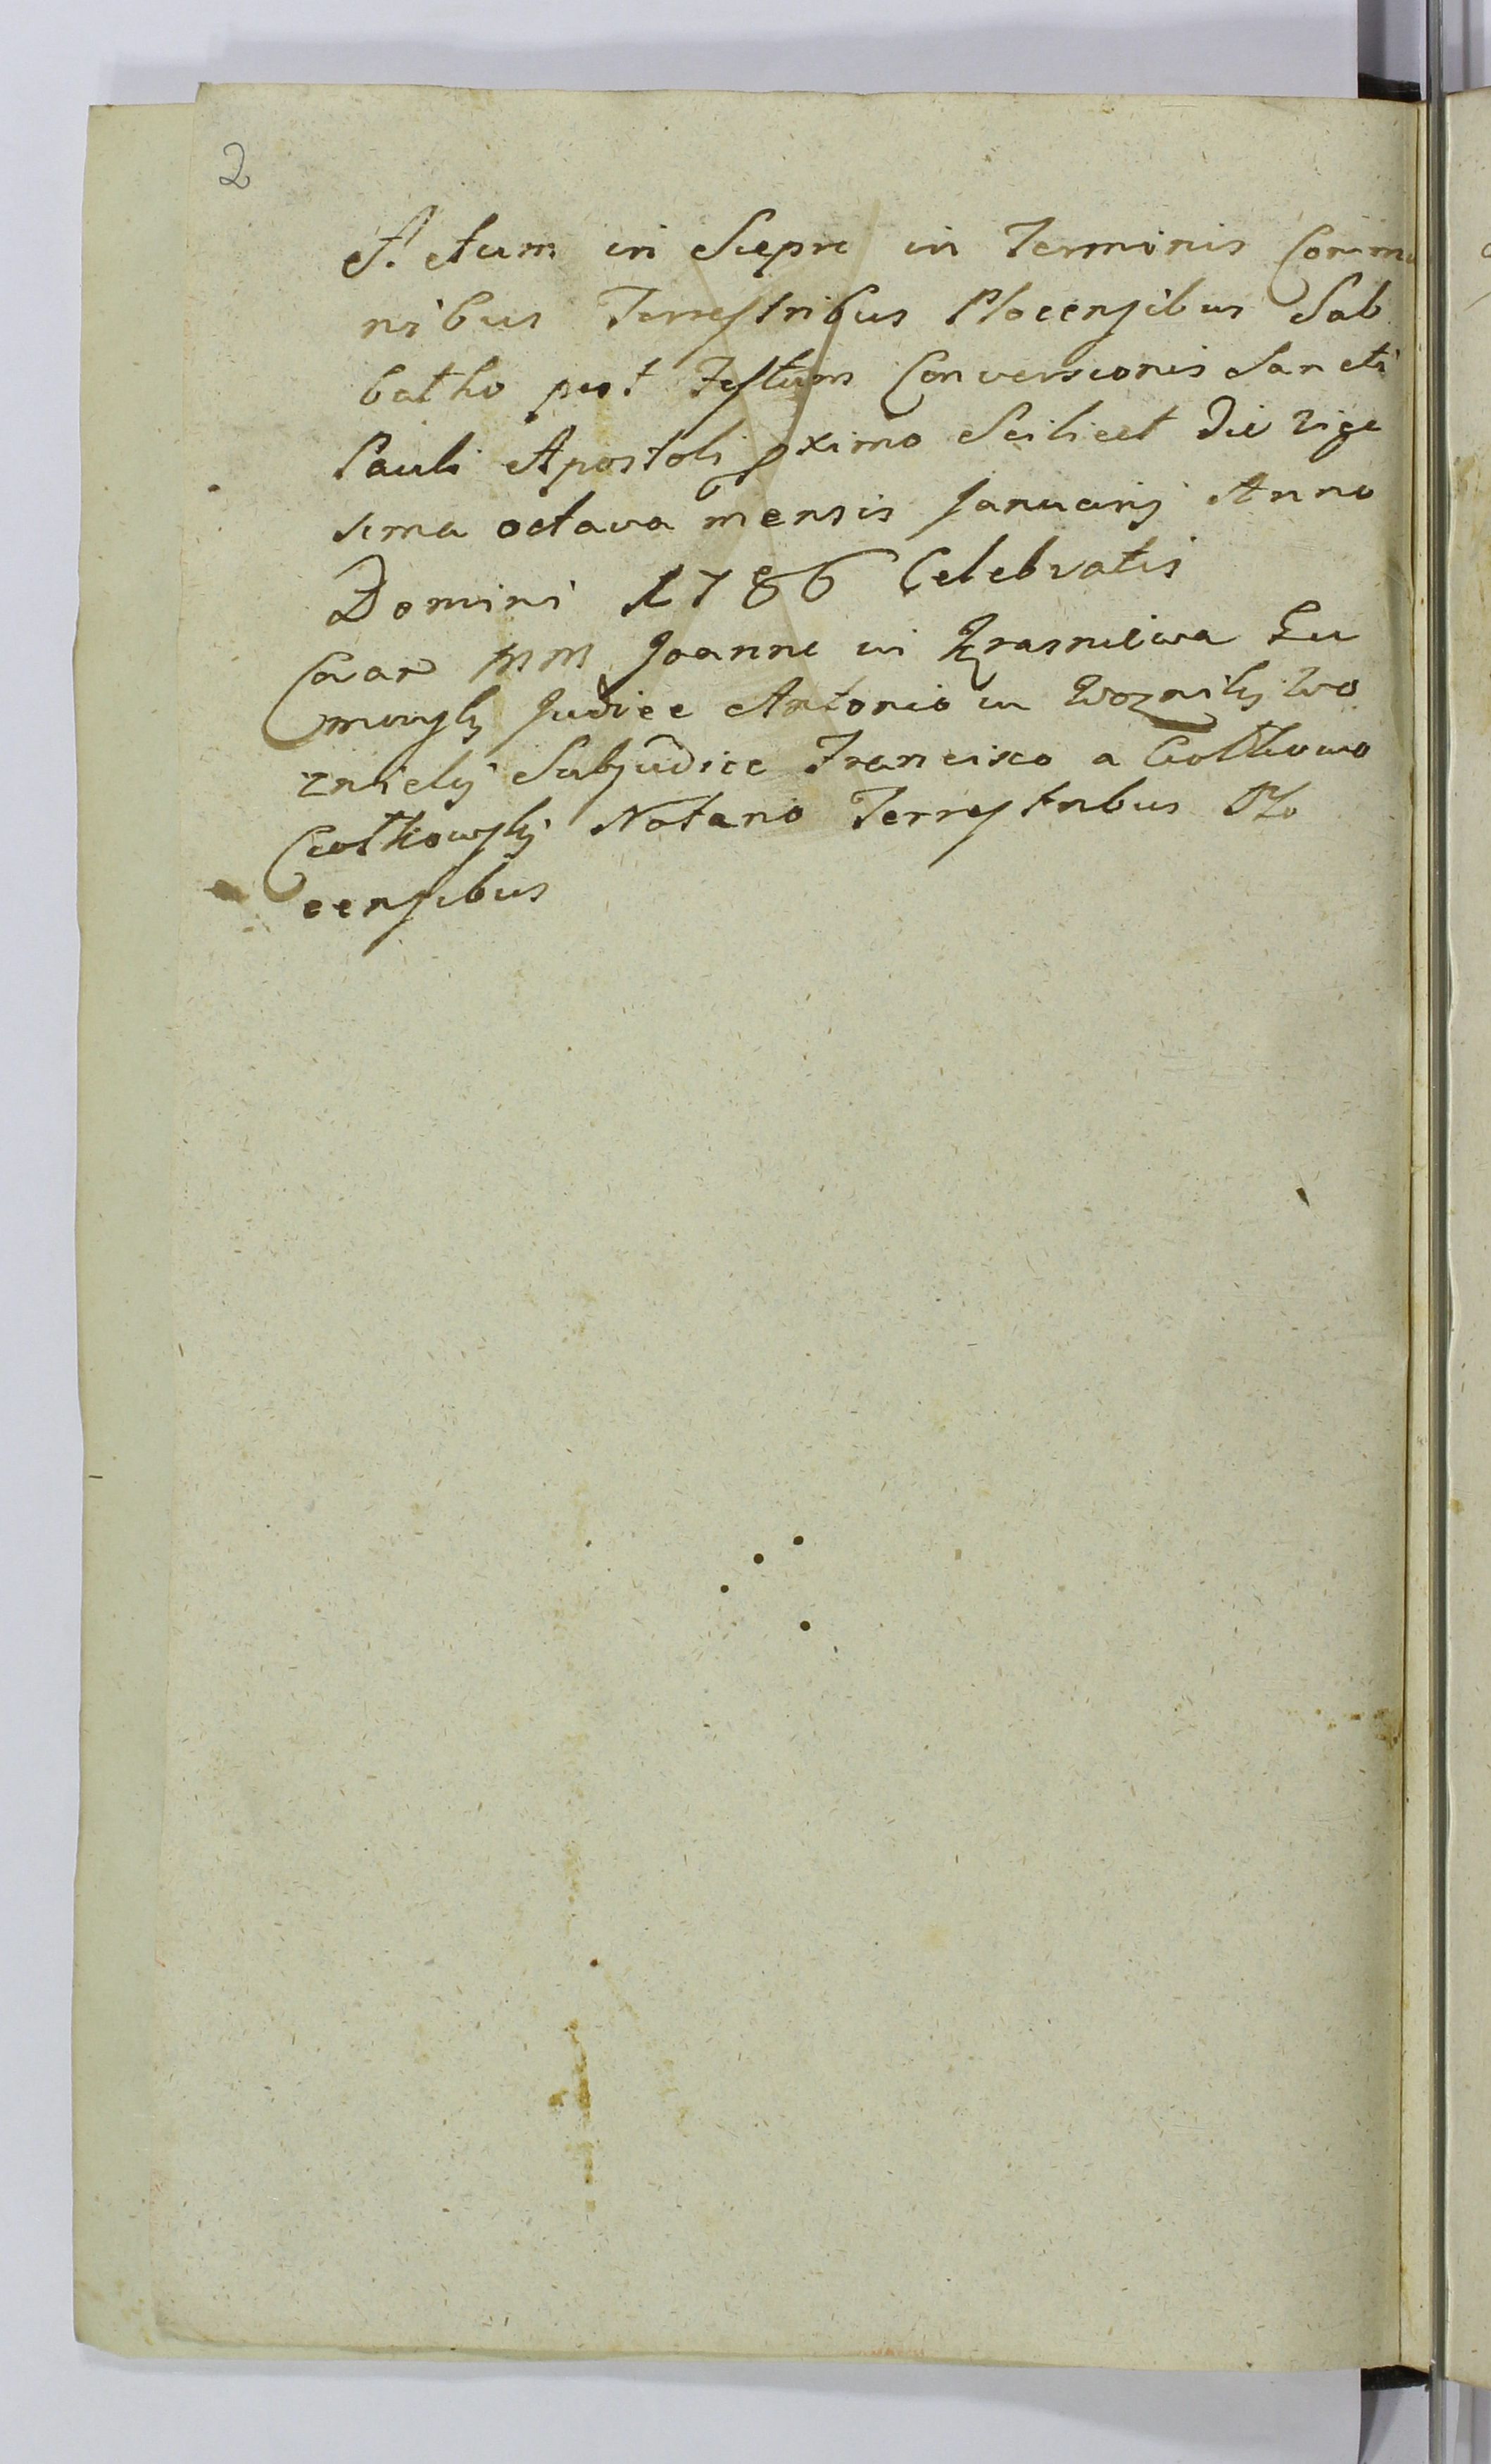 2
Actum in Sieprc in Terminis Commu
nibus Terrestribus Plocensibus Sab
batho post Festum Conversionis Sancti
Pauli Apostoli pximo Scilicet die vige
sima octava mensis Januarij Anno
Domini 1786 Celebratis
Coar MM Joanne in Krasniewa Zu
mowskj Judice Antonio in Woznikj Wo
znickj Subjudice Francisco a Ciotkowo
Ciotkowskj Notario Terrestribus Plo
censibus